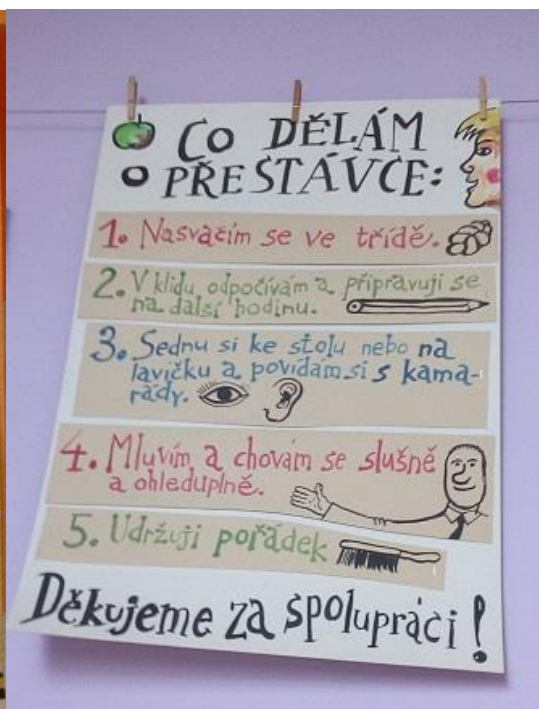 CO DĚLÁM
O PŘESTÁVCE:
1. Nasvačím se ve třídě.
2. V klidu odpočívám a připravuji se
na další hodinu.
3. Sednu si ke stolu nebo na
lavičku a povídám si s kama-
rády.
4. Mluvím a chovám se slušně
a ohleduplně.
5. Udržuji pořádek
Děkujeme za spolupráci!